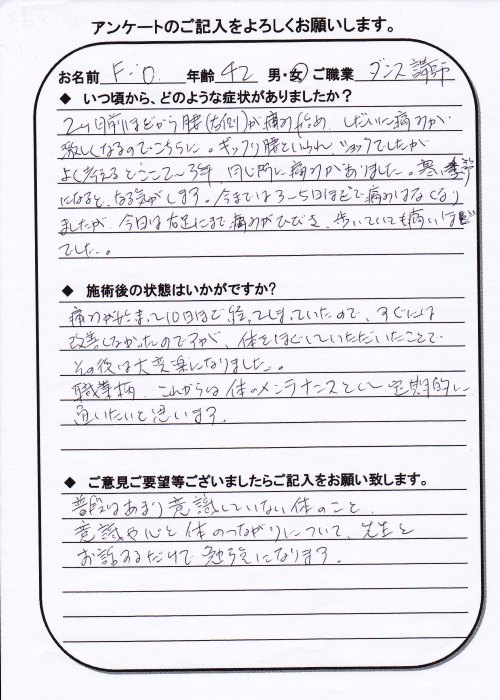 アンケートのご記入をよろしくお願いします。
お名前 F・O. 年齢 42 男・女 ご職業 ダンス講師
◆ いつ頃から、どのような症状がありましたか?
2ヶ月前ほどから腰(右側)が痛み始め、しだいに痛みが
激しくなるのでこちらに。ギックリ腰といわれ、ショックでしたが
よく考えるとここ2~3年、同じ所に痛みがありました。寒い季節
になると、なる気がします。今までは3~5日ほどで痛みはなくなり
ましたが、今日は右足にまで痛みがひびき、歩いていても痛いほど
でした。
◆ 施術後の状態はいかがですか?
痛みが始まって10日ほど経ってしまっていたので、すぐには
改善しなかったのですが、体をほぐしていただいたことで
その後は大変楽になりました。
職業柄、これからは体のメンテナンスとして定期的に
通いたいと思います。
◆ ご意見ご要望等ございましたらご記入をお願い致します。
普段はあまり意識していない体のこと
意識や心と体のつながりについて、先生と
お話するだけで勉強になります。